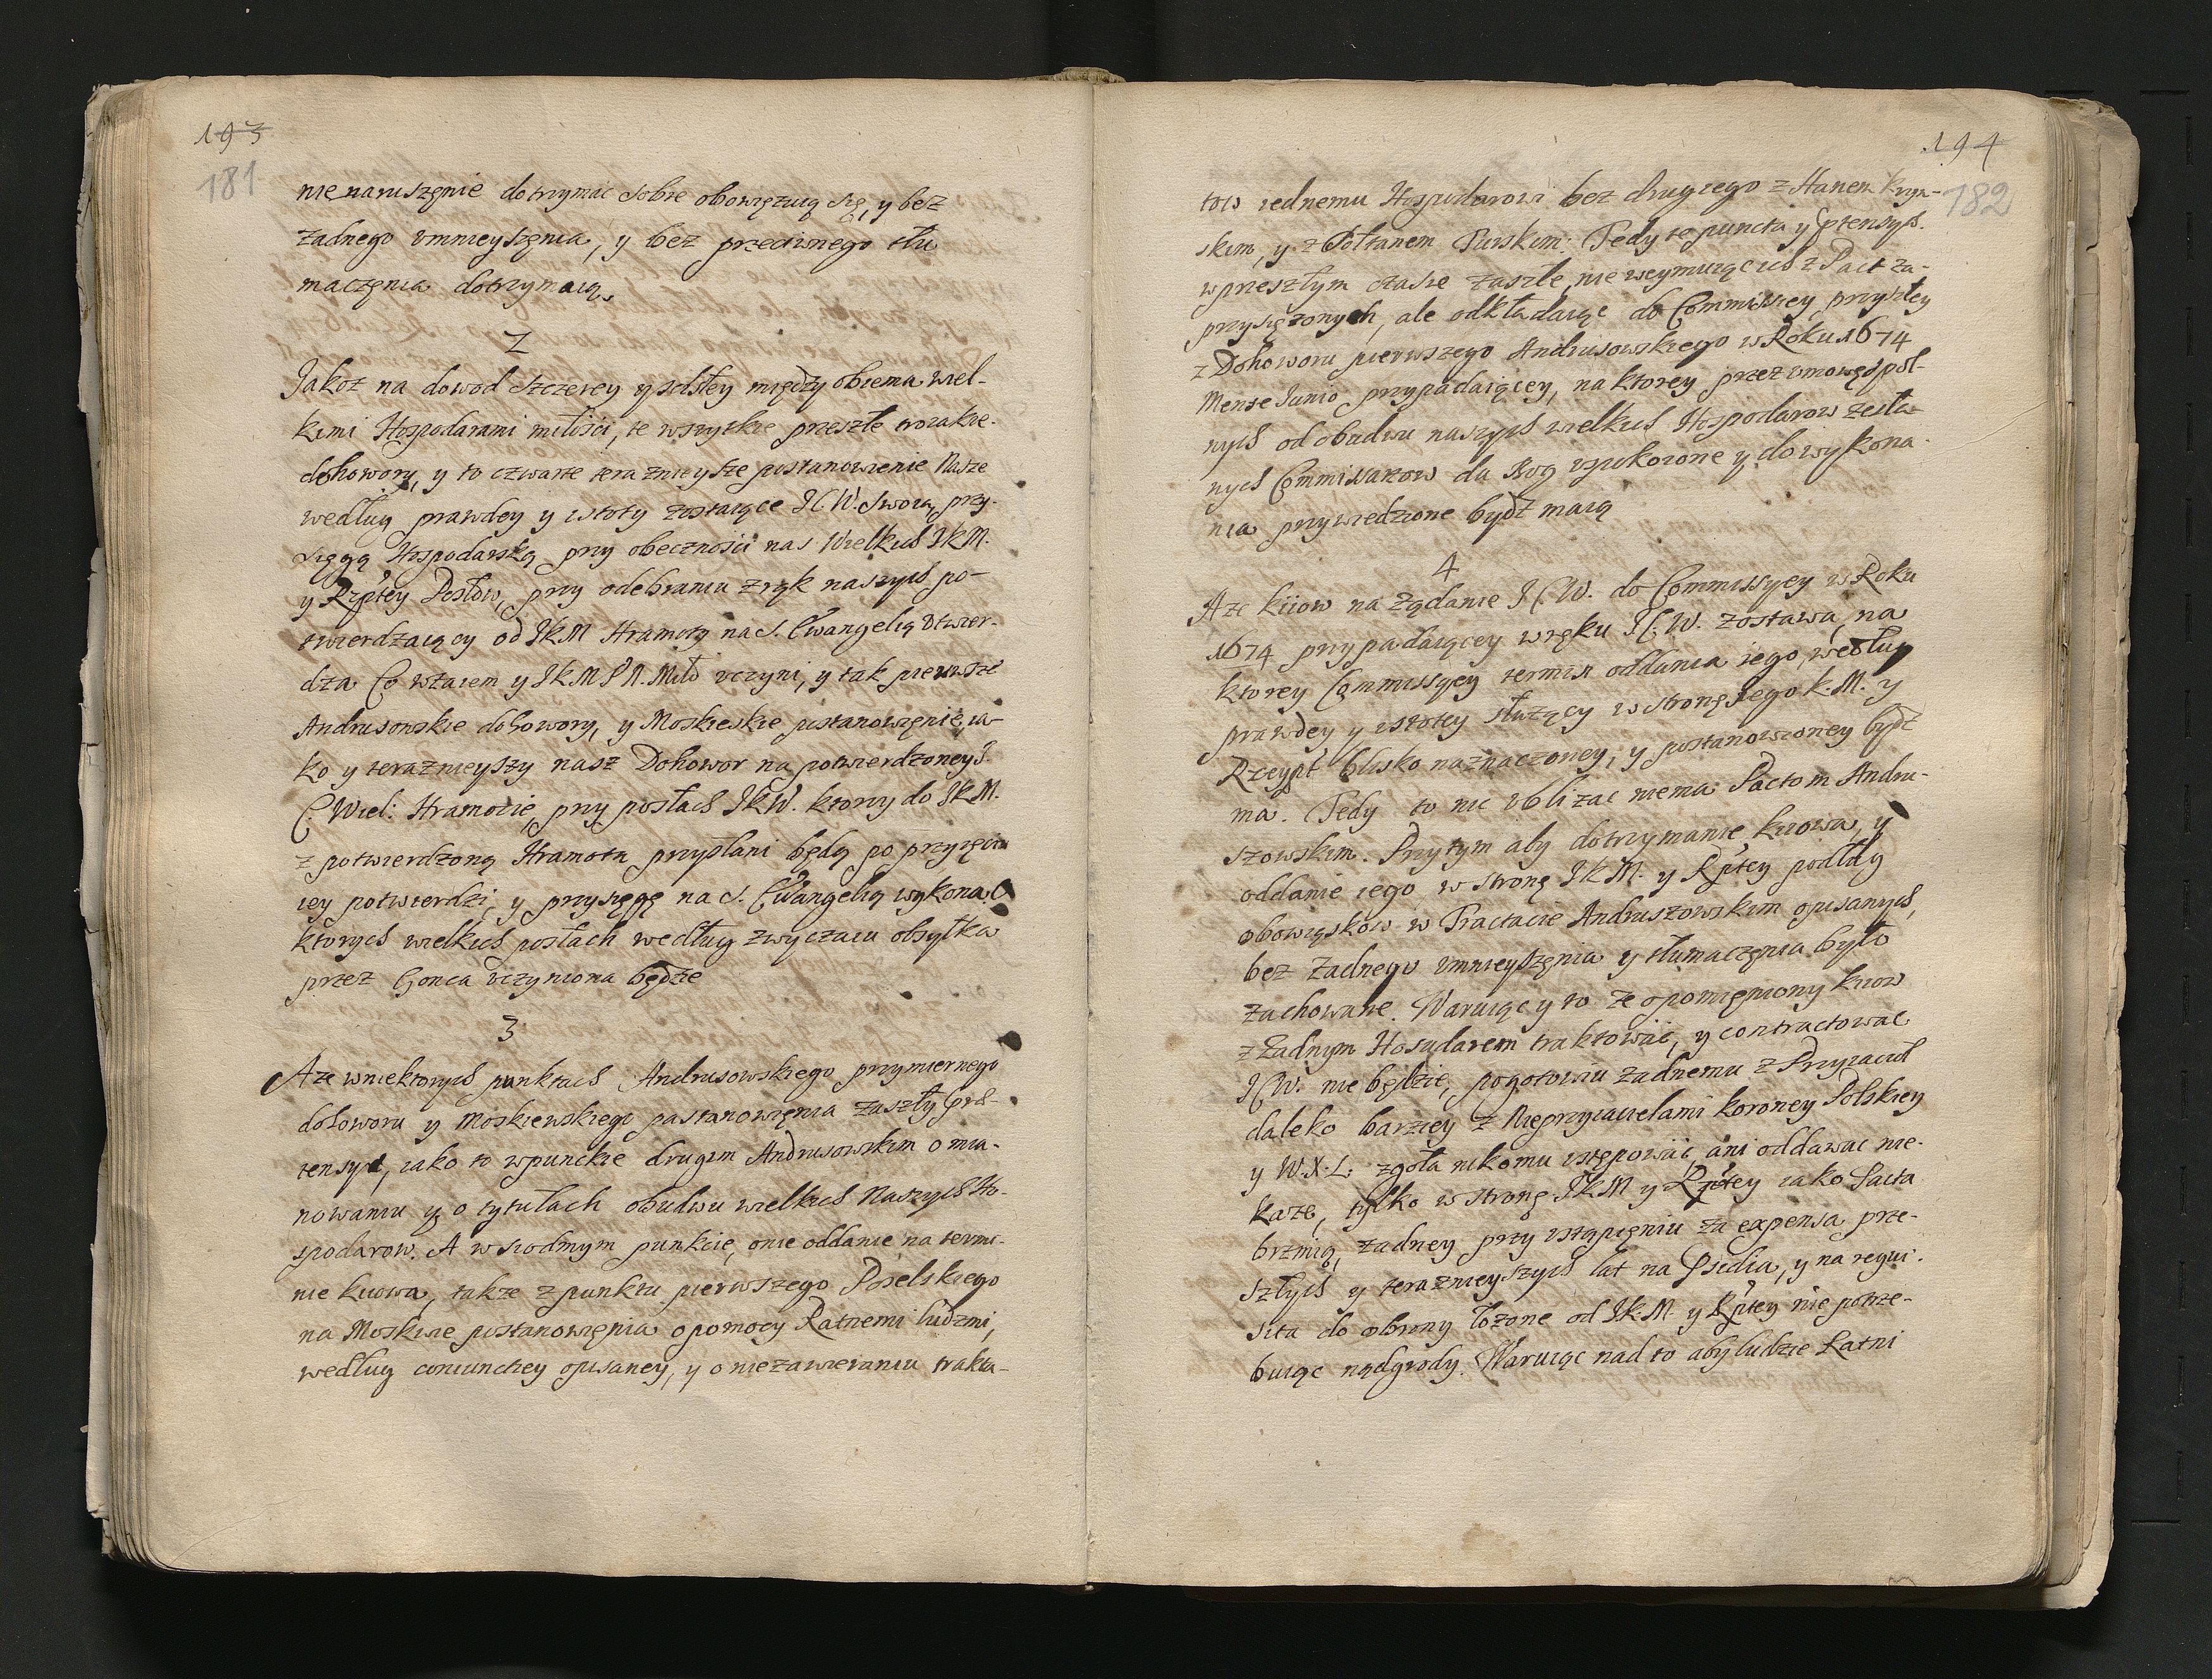 193
181
nienaruszęnie dotrzymac sobie obowięzuią się, y bez
żadnego vmnieyszęnia, y bez przeciwnego tłu
maczęnia dotrzymaią.
2
Jakoż na dowod szczerey y scisłey między obiema wiel-
kimi Hospodarami miłości, te wszytkie przeszłe troiakie
dohowory, y to czwarte teraznieysze postanowienie Nasze
według prawdey y istoty zostaiące J C W. swoią przy-
sięgą Hospodarską przy obecznosci nas Wielkich J K M.
y Rzptey Posłow, przy odebraniu z rąk naszych po-
twierdzaiący od J K M Hramoty na S. Ewangelią vtwier-
dza Co wzaiem y J K M P N. Miło vczyni, y tak pierwsze
Andrusowskie dohowory, y Moskieskie postanowięnie, ia-
ko y teraznieyszy nasz Dohowor na potwierdzoney J.
C. Wiel: Hramocie, przy posłach J K W. ktorzy do J K M.
z potwierdzoną Hramotą przysłani będą po przyięciu
iey potwierdzi, y przysięgę na S. Ewangelią wykona. O
ktorych wielkich posłach według zwyczaiu obsyłka
przez Gonca vczyniona będzie
3
A że w niektorych punktach Andrusowskiego przymiernego
dohoworu y Moskiewskiego pastanowięnia zaszły prae-
tensye, iako to w punckie drugim Andrusowskim o mia-
nowaniu y o tytułach obudwu wielkich Naszych Ho-
spodarow. A w siodmym punkcie, o nie oddanie na termi-
nie Kiiowa, także z punktu pierwszego Poselskiego
na Moskwie postanowięnia o pomocy Ratnemi ludzmi,
według coniunctiey opisaney, y o niezawieraniu trakta-
194
182
tow iednemu Hospodarowi bez drugiego z Hanem Krym-
skim, y z Sołtanem Turskim: Tedy te puncta y prtensye
w przeszłym czasie zaszłe, nie weymuiąc ich z Pact za-
przysiężonych, ale odkładaiąc do Commissiey przyszłey
z Dohoworu pierwszego Andrusowskiego w Roku 1674
Mense Junio przypadaiącey, na ktorey przez vmowę spol-
nych od obudwu naszych wielkich Hospodarow zesła-
nych Commissarzow da Bog vspokoione y do wykona-
nia przywiedzione bydź maią
4
A że Kiiow na żądanie J C W. do Commissyey w Roku
1674 przypadaiącey w ręku J C. W. zostawa, na
ktorey Commissyey termin oddania iego, według
prawdey y istotey słuzący w stronę iego K. M. y
Rzeypt blisko naznaczoney, y postanowioney bydź
ma. Tedy to nic vbliżac niema Pactom Andru-
szowskim. Przytym aby dotrzymanie Kiiowa, y
oddanie iego w stronę J K M. y Rptey podług
obowiąskow w Tractacie Andruszowskim opisanych,
bez żadnego vmnieyszęnia y tłumaczęnia było
zachowane. Waruiąc y to że opomięniony Kiiow
z Żadnym Hosudarem traktować, y contractowac
J C W. nie będzie, pogotowiu żadnemu z Przyiacioł
daleko barziey z Nieprzyiacielami Koroney Polskiey
y W. X. L. zgoła nikomu vstępować, ani oddawac nie-
każe, tylko w stronę J K M y Rptey iako Pacta
brzmią, żadney przy vstąpięniu za expensa prze-
szłych y teraznieyszych lat na Psidia, y na requi-
sita do obrony łożone od J K. M y Rptey nie potrze-
buiąc nadgrody. Waruiąc nad to aby ludzie Ratni